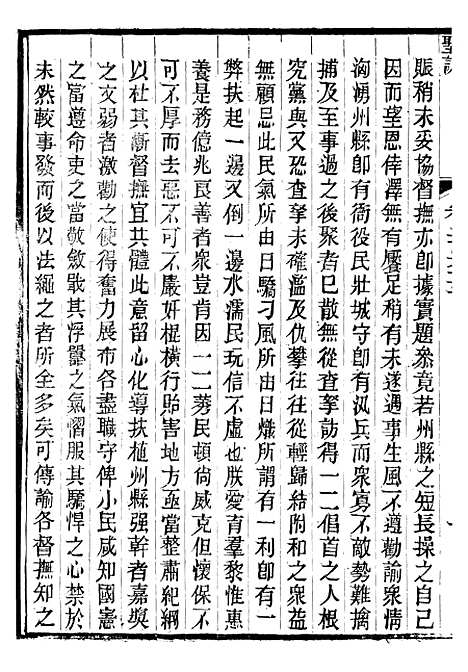 聖訓
賑稍未妥協督撫亦即據實題叅竟若州縣之短長操之自己
因而望恩倖澤無有饜足稍有未遂遇事生風不遵勸諭衆情
洶湧州縣卽有衙役民壯城守卽有汛兵而衆寡不敵勢難擒
捕及至事過之後聚者已散無從查拏訪得一二倡首之人根
究黨與又恐查拏未確濫及仇攀往往從輕歸結附和之衆益
無顧忌此民氣所由日驕刁風所由日熾所謂有一利卽有一
弊扶起一邊又倒一邊水濡民玩信不虛也朕愛育羣黎惟惠
養是務億兆良善者衆豈肯因一二莠民頓尙威克但懷保不
可不厚而去惡不可不嚴奸棍橫行貽害地方亟當整肅紀綱
以杜其漸督撫宜共體此意留心化導扶植州縣强幹者嘉奬
之文弱者激勸之使得奮力展布各盡職守俾小民咸知國憲
之當遵命吏之當敬斂戢其浮囂之氣慴服其驕悍之心禁於
未然較事發而後以法繩之者所全多矣可傳諭各督撫知之